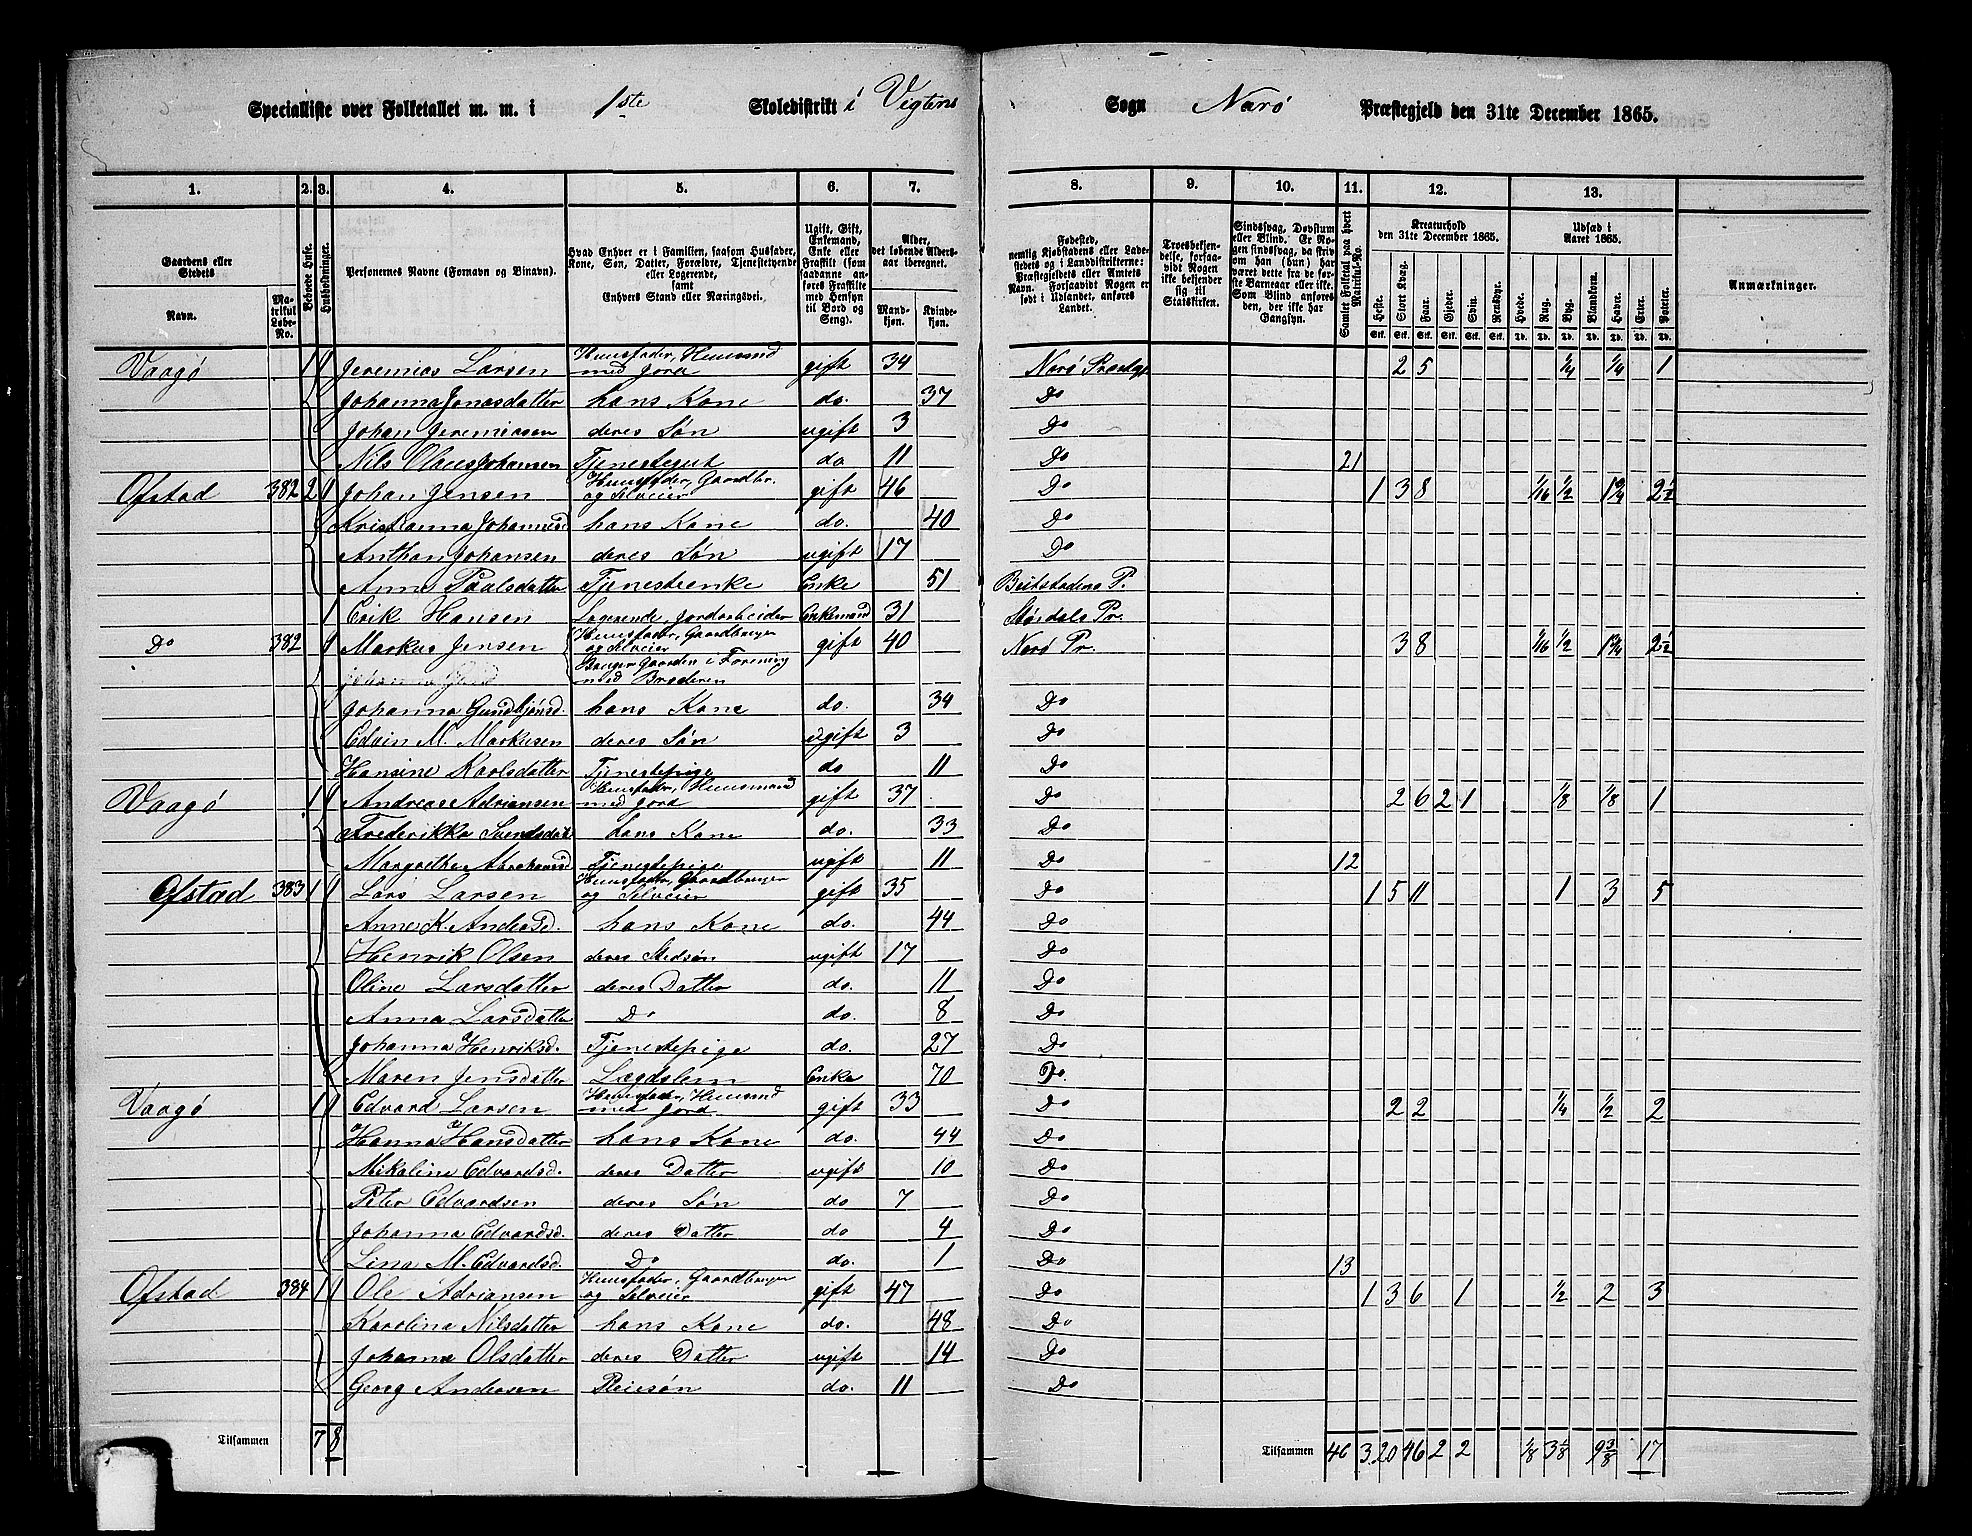 Specialliste over Folketallet m. m. i 1ste Skoledistrikt i Vigtens Sogn Narö Præstegjeld den 31te December 1865.
1. 2. 3. 4. 5. 6. 7. 8. 9. 10. 11. 12. 13.
Gaardens eller Stedets Navn. Matrikul Løbe-No. Beboede Huse. Husholdninger. Personernes Navne (Fornavn og Binavn). Hvad Enhver er i Familien, saasom Husfader, Kone, Søn, Datter, Forældre, Tjenestetyende eller Logerende, samt Enhvers Stand eller Næringsvei. Ugift, Gift, Enkemand, Enke eller Fraskilt (som saadanne anføres Fraskilte med Hensyn til Bord og Seng). Alder, det løbende Alders-aar iberegnet. Mandkjøn. Kvindekjøn. Fødested, nemlig Kjøbstadens eller Ladestedets og i Landdistrikterne: Præstegjeldets eller Amtets Navn. Forsaavidt Nogen er født i Udlandet, anføres Landet. Troesbekjendelse, forsaavidt Nogen ikke bekjender sig til Statskirken. Sindssvag, Døvstum eller Blind. Er Nogen sindssvag, da skrives om han (hun) har været dette fra de første Barneaar eller ikke. Som Blind anføres den, der ikke har Gangsyn. Samlet Folketal paa hvert Matrikul-No. Kreaturhold den 31te December 1865. Heste. Stort Kvæg. Faar. Gjeder. Svin. Rensdyr. Udsæd i Aaret 1865. Hvede. Rug. Byg. Blandkorn. Havre. Erter. Poteter. Anmærkninger.
Vaagö 1 1 Jeremias Larsen Huusfader, Huusmd med Jord gift 34 Narö Præstgj 2 5 1/4 1/4 1
Johanna Jonasdatter hans Kone do. 37 Do
Johan Jeremiasen deres Søn ugift 3 Do
Nils Olaus Johansen Tjenestegut do 11 Do 21
Ofstad 382 2 1 Johan Jensen Huusfader, Gaardbr. og Selveier gift 46 Do 1 3 8 1/16 1/2 1 3/4 2 1/2
Kristianna Johannesd hans Kone do. 40 Do
Anthon Johansen deres Søn ugift 17 Do
Anne Paalsdatter Tjenestenke Enke 51 Beitstadens P.
1 Erik Hansen Logerende, Jordarbeider Enkemand 31 Størdals Pr.
Do 382 1 Markus Jensen Huusfader, Gaardbruger og Selveier gift 40 Narö Pr. 3 8 1/16 1/2 1 3/4 2 1/2
Bruger Gaarden i Forening med Broderen
Johanna Gundbjönsd. hans Kone do. 34 Do
Edvin M. Markusen deres Søn ugift 3 Do
Hansine Karlsdatter Tjenestepige do 11 Do
Vaagö 1 1 Andreas Adriansen Huusfader, Huusmand med Jord gift 37 Do 2 6 2 1 1/8 1/8 1
Frederikka Svendsdatt hans Kone do. 33 Do
Margrethe Abrahamsd Tjenestepige ugift 11 Do 12
Ofstad 383 1 1 Lars Larsen Huusfader, Gaardbruger og Selveier gift 35 Do 1 5 11 1 3 5
Anne K. Andersd. hans Kone do. 44 Do
Henrik Olsen deres Stedsøn ugift 17 Do
Oline Larsdatter deres Datter do. 11 Do
Anna Larsdatter Do do. 8 Do
Johanna Henriksd. Tjenestepige do. 27 Do
Maren Jensdatter Lægdslem Enke 70 Do.
Vaagö 1 1 Edvard Larsen Huusfader, Huusmd med Jord gift 33 Do 2 2 1/4 1/2 2
Hanna Hansdatter hans Kone do. 44 Do
Mikaline Edvardsd. deres Datter ugift 10 Do
Peter Edvardsen deres Søn do 7 Do
Johanna Edvardsd. deres Datter do 4 Do
Lina M. Edvardsd. Do do. 1 Do 13
Ofstad 384 1 1 Ole Adriansen Huusfader, Gaardbruger og Selveier gift 47 Do 1 3 6 1 1/2 2 3
Karolina Nilsdatter hans Kone do. 48 Do
Johanna Olsdatter deres Datter ugift 14 Do
Georg Andersen Pleiesøn do. 11 Do
Tilsammen 7 8 Tilsammen 46 3 20 46 2 2 1/8 3 1/8 9 3/8 17